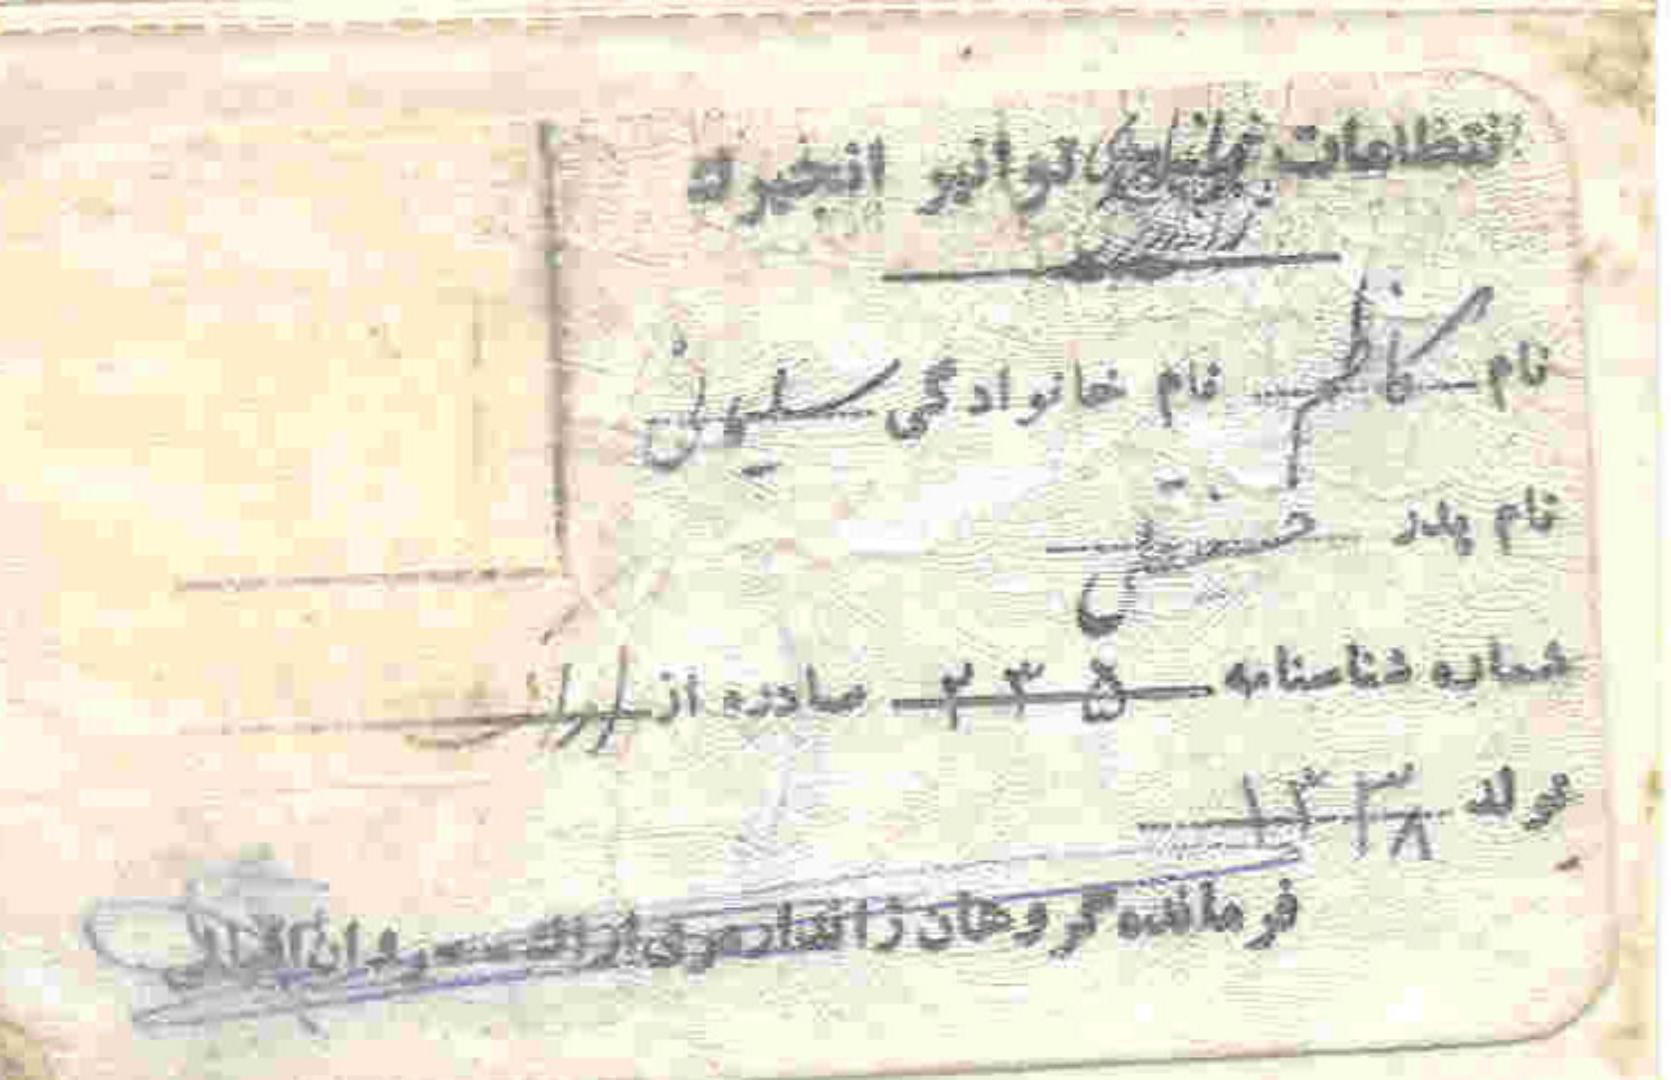 انتظامات توانیر انجیرک
نام کاظم نام خانوادگی سلیمانی
نام پدر حسینعلی
شماره شناسنامه ۲۳۵ صادره از اراک
تولد ۱۳۳۸
فرمانده گروهان ژاندارمری اراک